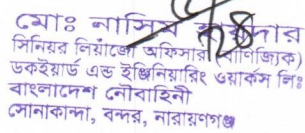 মোঃ নাসিম হায়দার
সিনিয়র লিয়াজোঁ অফিসার (বাণিজ্যিক)
ডকইয়ার্ড এন্ড ইঞ্জিনিয়ারিং ওয়ার্কস লিঃ
বাংলাদেশ নৌবাহিনী
সোনাকান্দা, বন্দর, নারায়ণগঞ্জ